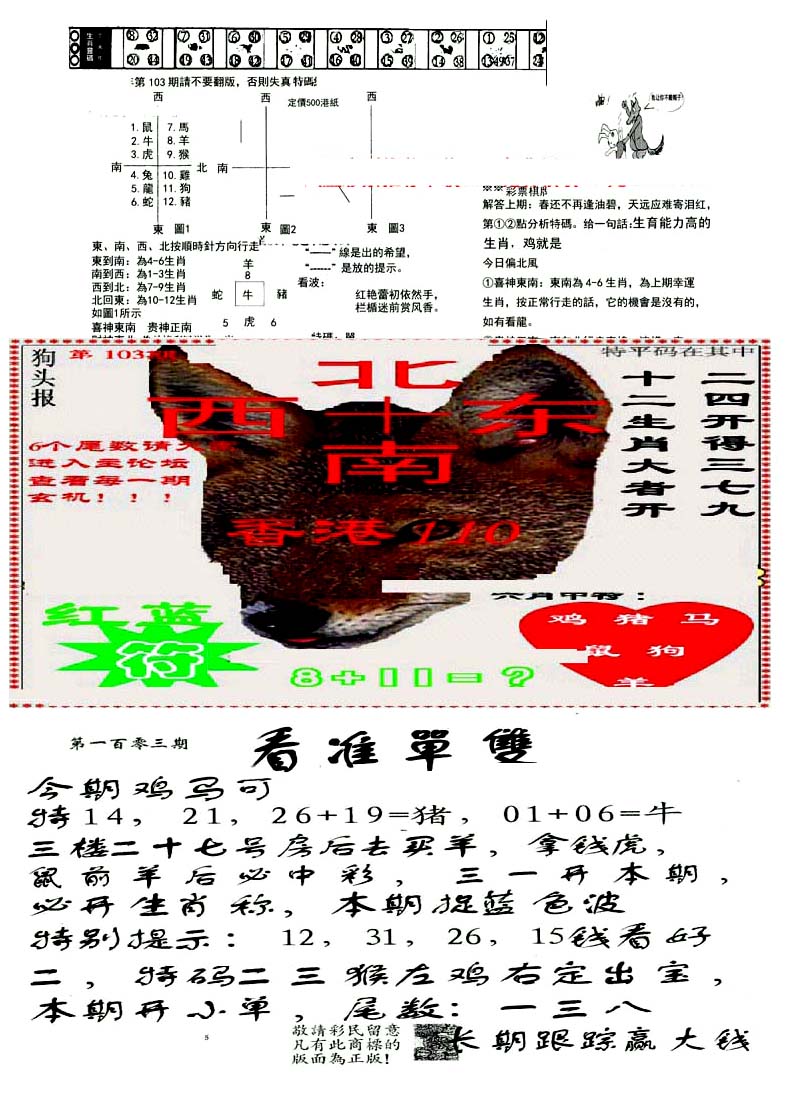 生肖靈碼
年第103期請不要翻版，否則失真特碼
西 西 西
定價500港紙
1.鼠 7.馬
2.牛 8.羊
3.虎 9.猴
南 北 南
4.兔 10.雞
5.龍 11.狗
6.蛇 12.豬
東 圖1 東 圖2 東 圖3
東、南、西、北按順時針方向行走
東到南：為4-6生肖
南到西：為1-3生肖
西到北：為7-9生肖
北回東：為10-12生肖
如圖1所示
喜神東南 贵神正南
羊
8
蛇 牛 豬
5 虎 6
“——”線是出的希望，
“------”是放的提示。
看波：
红艳蕾初依然手，
栏楯迷前赏风香。
特碼：單
※※彩票棋牌
解答上期：春还不再逢油碧，天远应难寄泪红，
第①②點分析特碼。给一句話：生育能力高的
生肖，鸡就是
今日偏北風
①喜神東南：東南為4-6生肖，為上期幸運
生肖，按正常行走的話，它的機會是沒有的，
如有看龍。
狗头报
第 103期
特平码在其中
北
西十东
南
香港110
二四开得三七九
十二生肖大者开
6个尾数请
进入主论坛
查看每一期
玄机！！！
六月中特：
鸡 猪 马
鼠 狗
羊
红蓝
符
8+11=?
第一百零三期
看准單雙
今期鸡马可
特14，21，26+19=猪，01+06=牛
三楼二十七号房后去买羊，拿钱虎，
鼠前羊后必中彩，三一开本期，
必开生肖称，本期捉蓝色波
特别提示：12，31，26，15钱看好
二，特码二三猴左鸡右定出宝，
本期开小单，尾数：一三八
敬請彩民留意
凡有此商標的
版面為正版！
长期跟踪赢大钱